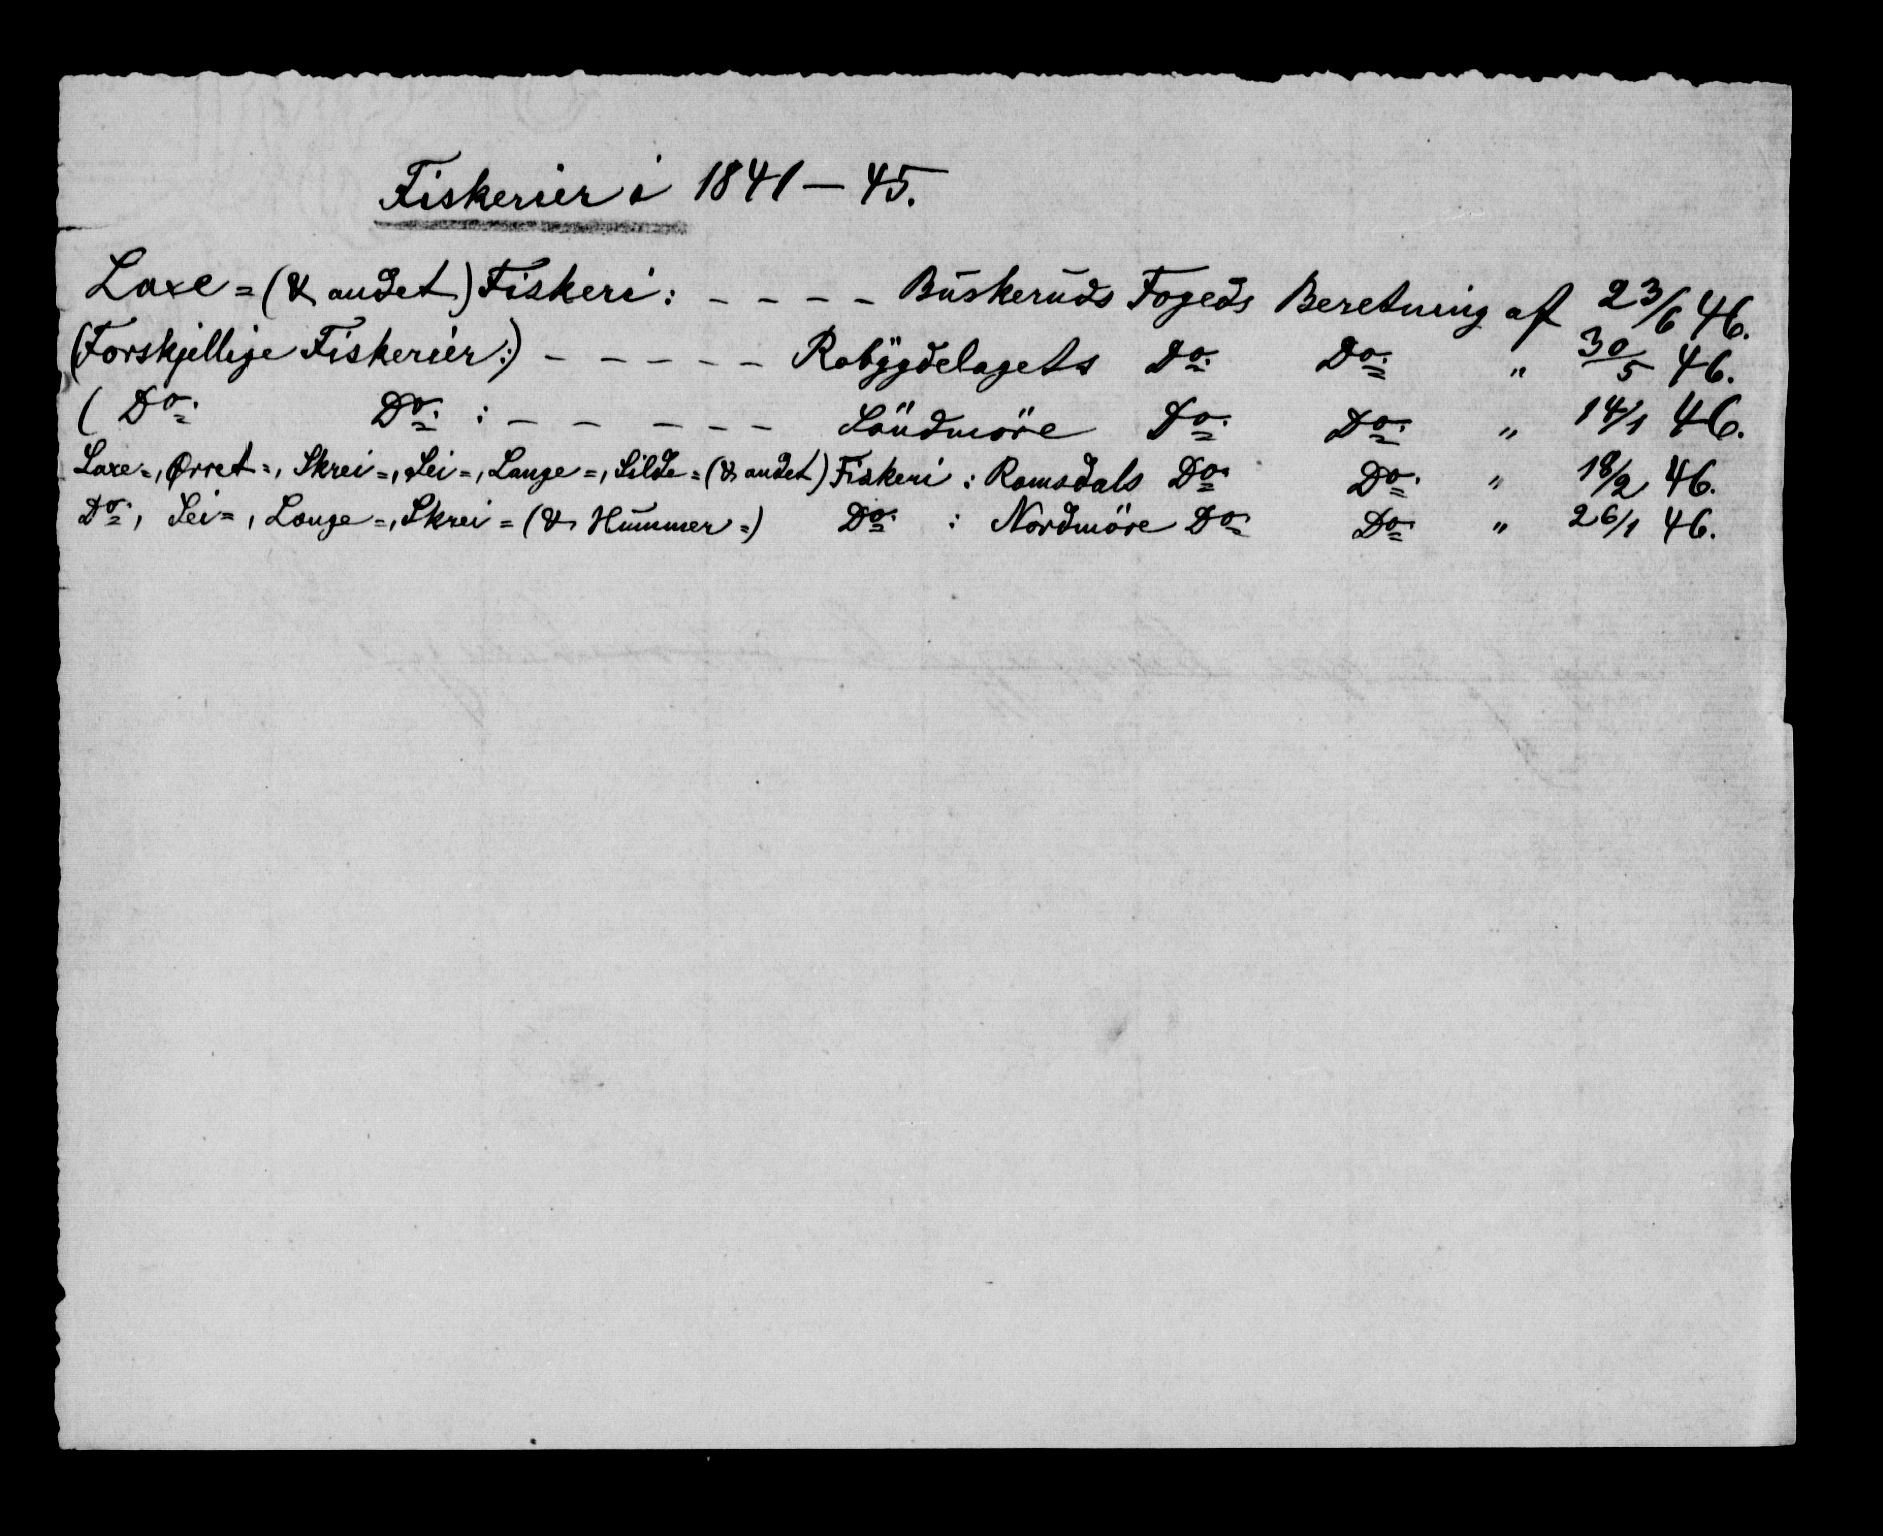 Fiskerier i 1841 – 45.
Laxe = (& andet) Fiskeri : – – – – Buskeruds Fogeds Beretning af 23/6 46.
(Forskjellige Fiskerier :) – – – – – Robÿgdelagets Do. Do. " 30/5 46.
( Do. Do. : – – – – – Söndmöre Do. Do. " 14/1 46.
Laxe =, Ørret =, Skrei =, Sei =, Lange =, Silde = (& andet) Fiskeri : Romsdals Do. Do. " 18/2 46.
Do., Sei =, Lange =, Skrei = (& Hummer =) Do. : Nordmöre Do. Do. " 26/1 46.